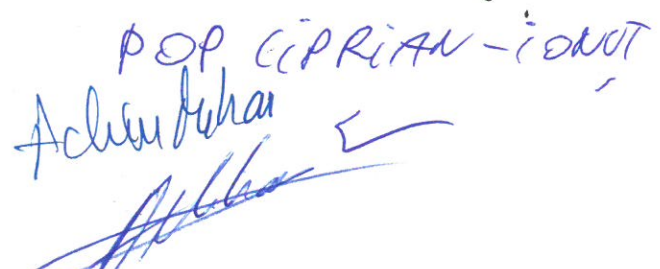 POP CiPRiAN-iONUȚ
Achim Mihai